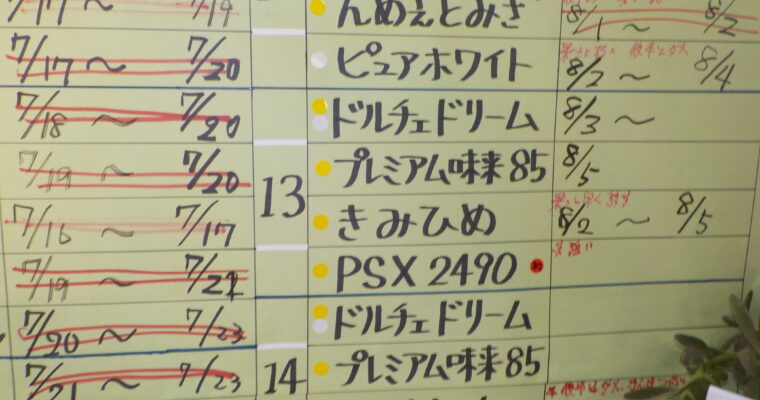 7/19 んめぇとみさ 8/1 ~ 8/2
7/17 ~ 7/20 ピュアホワイト 8/2 ~ 8/4
7/18 ~ 7/20 ドルチェドリーム 8/3 ~
7/19 7/20 13 プレミアム味来 85 8/5
7/16 ~ 7/17 きみひめ 8/2 ~ 8/5
7/19 7/21 PSX 2490
7/20 ~ 7/23 ドルチェドリーム
7/21 ~ 7/23 14 プレミアム味来 85